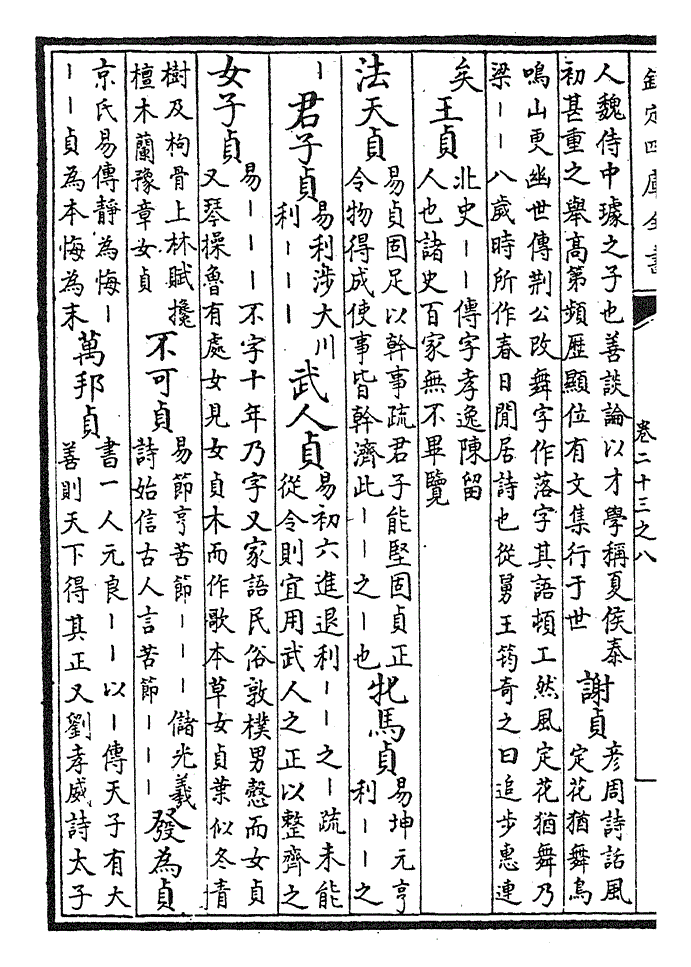 欽定四庫全書
卷二十三之八
人魏侍中璩之子也善談論以才學稱夏侯泰
初甚重之舉高第頻歷顯位有文集行于世
謝貞
彦周詩話風
定花猶舞鳥
鳴山更幽世傳荆公改舞字作落字其語頓工然風定花猶舞乃
梁丨丨八歲時所作春日閒居詩也從舅王筠奇之曰追步惠連
矣
王貞
北史丨丨傳字孝逸陳留
人也諸史百家無不畢覽
法天貞
易貞固足以幹事疏君子能堅固貞正
令物得成使事皆幹濟此丨丨之丨也
牝馬貞
易坤元亨
利丨丨之
丨
君子貞
易利涉大川
利丨丨丨
武人貞
易初六進退利丨丨之丨疏未能
從令則宜用武人之正以整齊之
女子貞
易丨丨丨不字十年乃字又家語民俗敦樸男慤而女貞
又琴操魯有處女見女貞木而作歌本草女貞葉似冬青
樹及枸骨上林賦欃
檀木蘭豫章女貞
不可貞
易節亨苦節丨丨丨儲光羲
詩始信古人言苦節丨丨丨
發為貞
京氏易傳靜為悔丨
丨丨貞為本悔為末
萬邦貞
書一人元良丨丨以丨傳天子有大
善則天下得其正又劉孝威詩太子